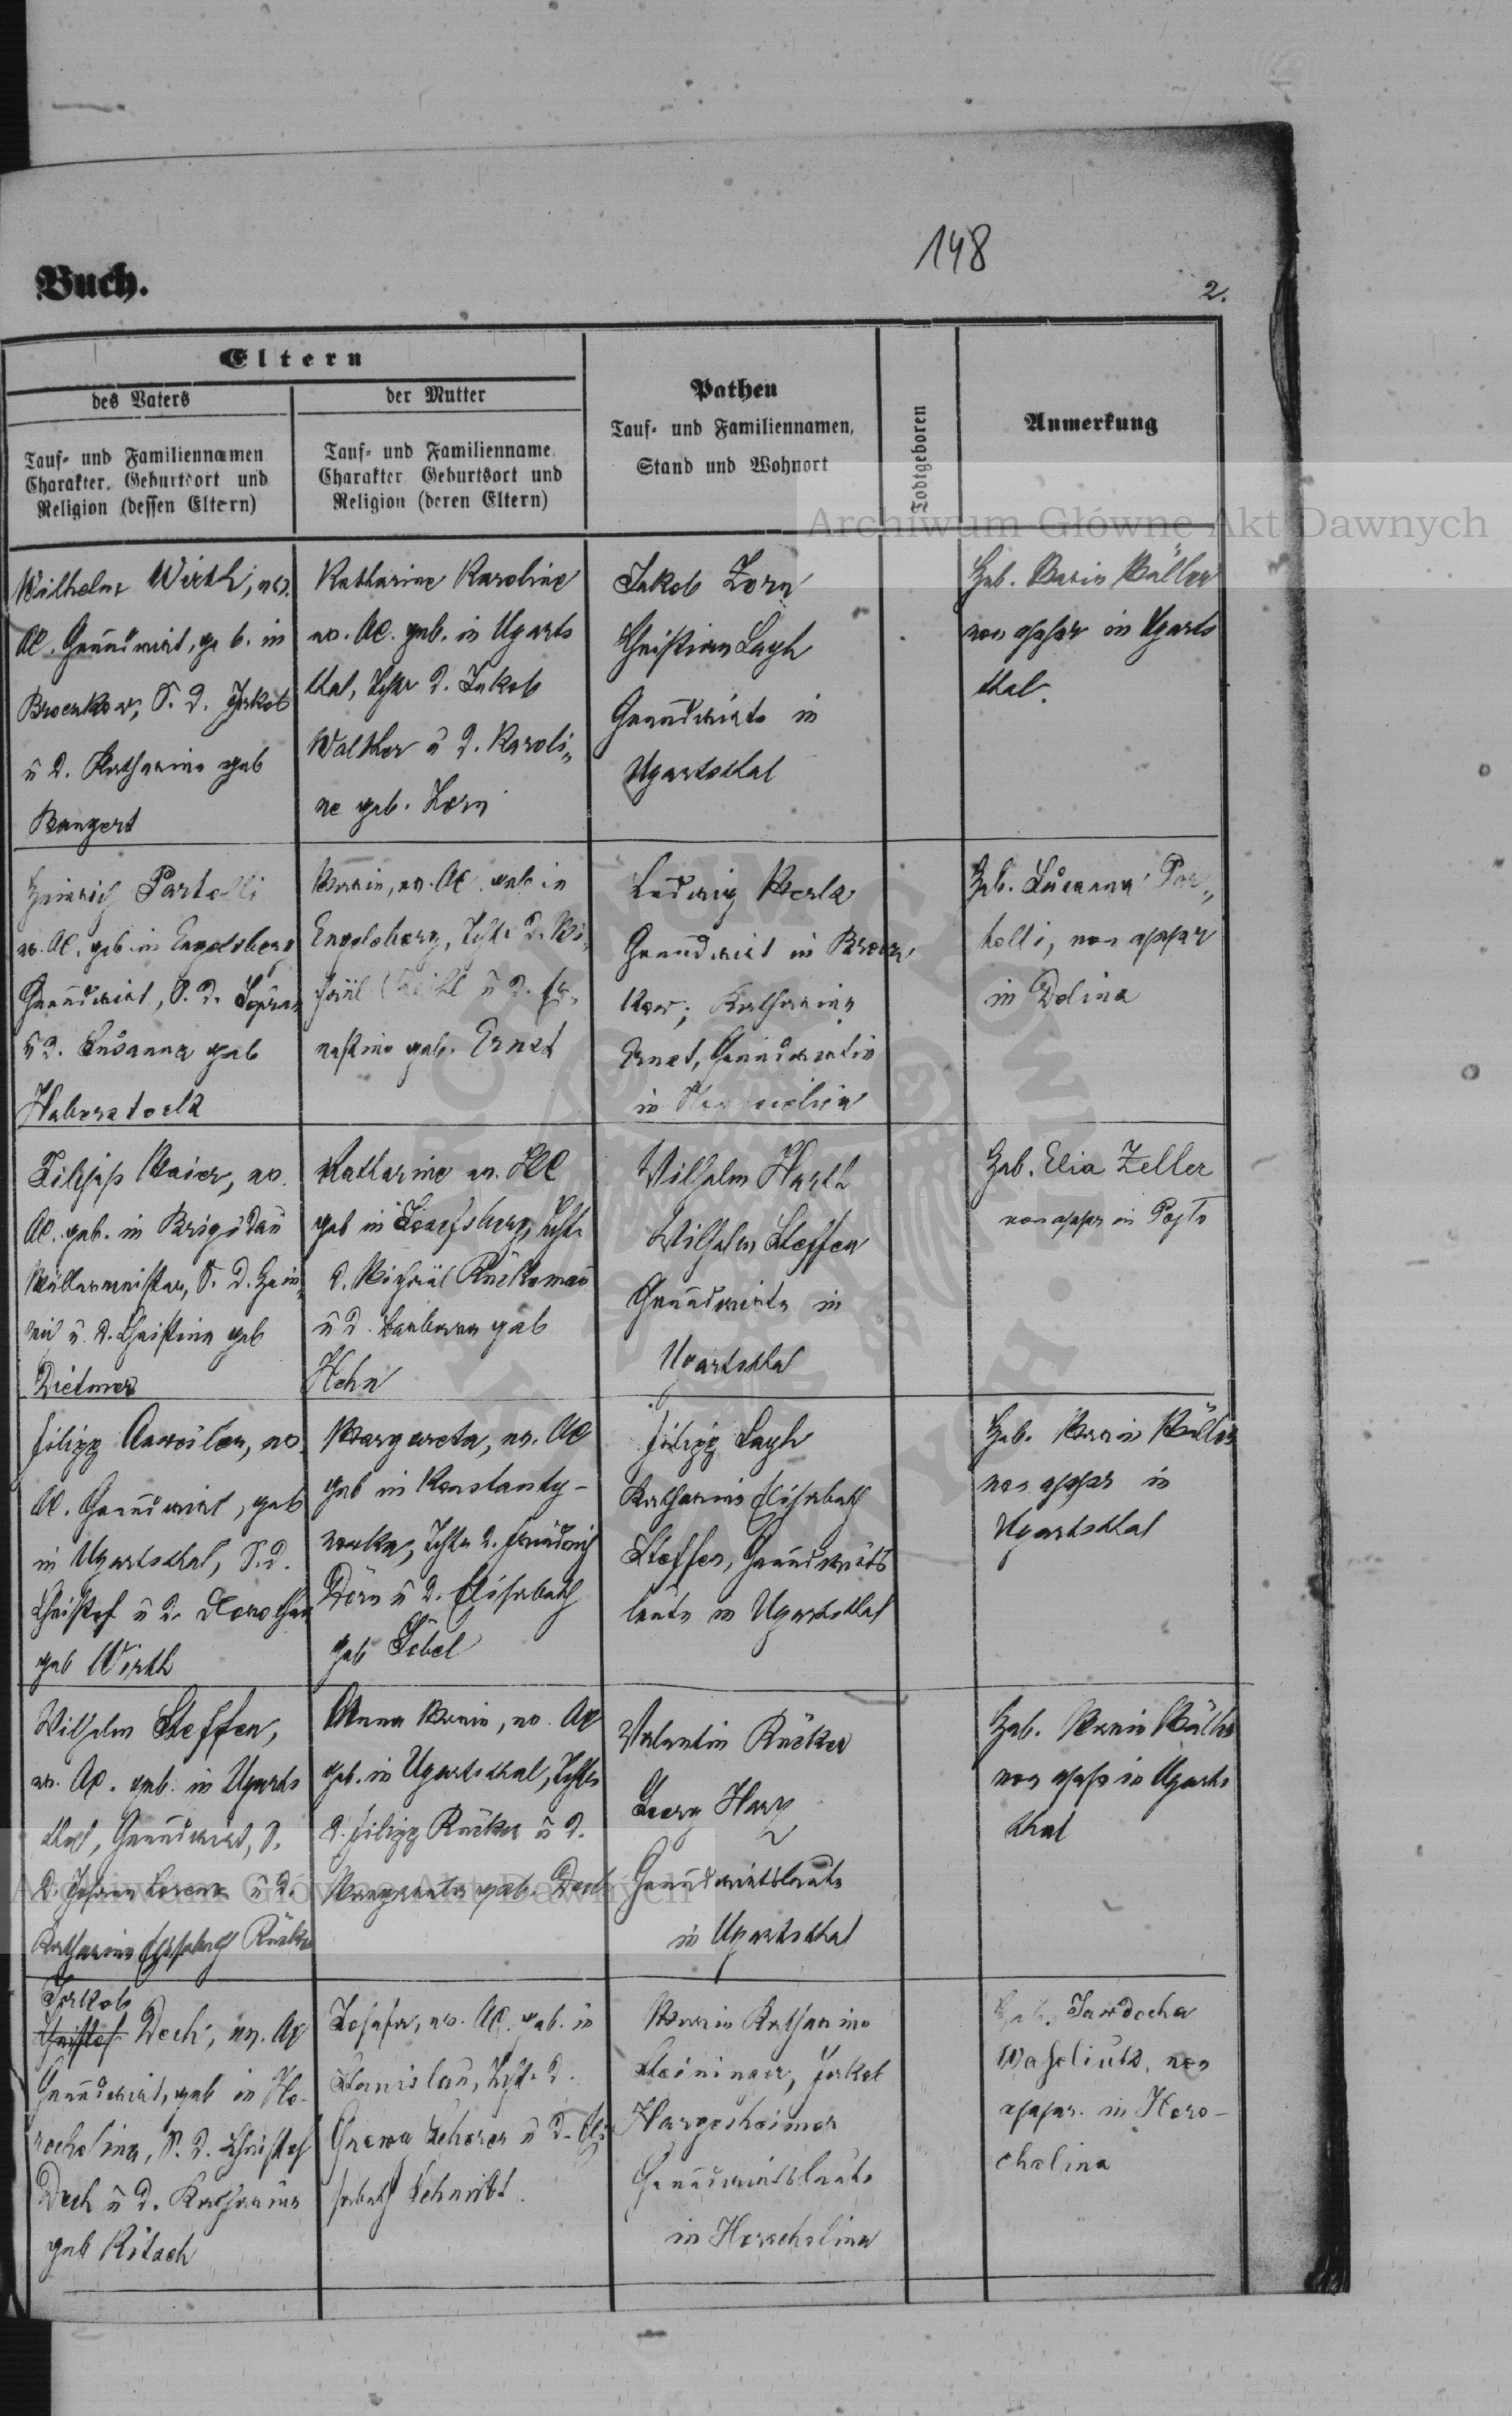 148
Buch.
2.
Eltern
des Vaters
Tauf- und Familiennamen
Charakter, Geburtsort und
Religion (dessen Eltern)
der Mutter
Tauf- und Familienname.
Charakter Geburtsort und
Religion (deren Eltern)
Pathen
Tauf- und Familiennamen,
Stand und Wohnort
Todtgeboren
Anmerkung
Archiwum Główne Akt Dawnych
Wilhelm Wirth, ev.
AC. Grundwirt, geb. in
Broczkow, S. d. Jakob
u d. Katharina geb
Bangert
Katharine Karoline
ev. AC. geb. in Ugarts
thal, Tcht. d. Jakob
Walther u d. Karoli„
ne geb. Zorn
Jakob Zorn
Christian
Grundwirte in
Ugartsthal
Heb. Maria Müller
non appr in Ugarts
thal.
Heinrich Partolli
ev. AC. geb in Engelsberg
Grundwirt, S. d.
u d. Susanna geb
Haberstock
Maria, ev. AC. geb in
Engelsberg, Tcht. d. Mi„
chael u d. Er„
nestine geb. Ernst
Ludwig
Grundwirt in Brocz
kow; Katharina
Ernst, Grundwirtin
in
Heb. Susanna Par„
tolli, non appr
in Dolina
Filipp Maier, ev.
AC. geb. in Brigidau
Müllermeister, S. d. Hein„
rich u. d. Christina geb
Dietmer
Katharine ev. HC
geb in Josefsberg, Tcht.
d. Michael
u d. Barbara geb
Hehn
Wilhelm Harth
Wilhelm Steffen
Grundwirte in
Ugartsthal
Heb. Elia Zeller
non appr in
Filipp ev.
AC. Grundwirt, geb
in Ugartsthal, S. d.
Christof u d. Dorothea
geb Wirth
Margareta, ev. AC
geb in Konstanty-
nowka, Tcht. d. Friedrich
Dörn u d. Elisabeth
geb
Filipp
Katharina Elisabeth
Steffen, Grundwirts
leute in Ugartsthal
Heb. Maria Müller
non appr in
Ugartsthal
Wilhelm Steffen,
ev. AC. geb. in Ugarts
thal, Grundwirt, S.
d. Johann Lorenz u d.
Katharina Elisabeth Rücker
Anna Maria, ev. AC
geb. in Ugartsthal, Tcht.
d. Filipp Rücker u d.
Margareta geb. Dech
Valentin Rücker
Georg Harz
Grundwirtsleute
in Ugartsthal
Heb. Maria Müller
non appr in Ugarts
thal
Jakob
Christof Dech, ev. AC
Grundwirt, geb in Ho-
rocholina, S. d. Christof
Dech u d. Katharina
geb
ev. AC. geb. in
Stanislau, Tcht. d.
Scherer u d. Eli
sabeth Schmidt.
Maria Katharina
Steininger, Jakob
Hargesheimer
Grundwirtsleute
in Horocholina
Heb. Jawdocha
non
appr. in Horo-
cholina
Archiwum Główne Akt Dawnych